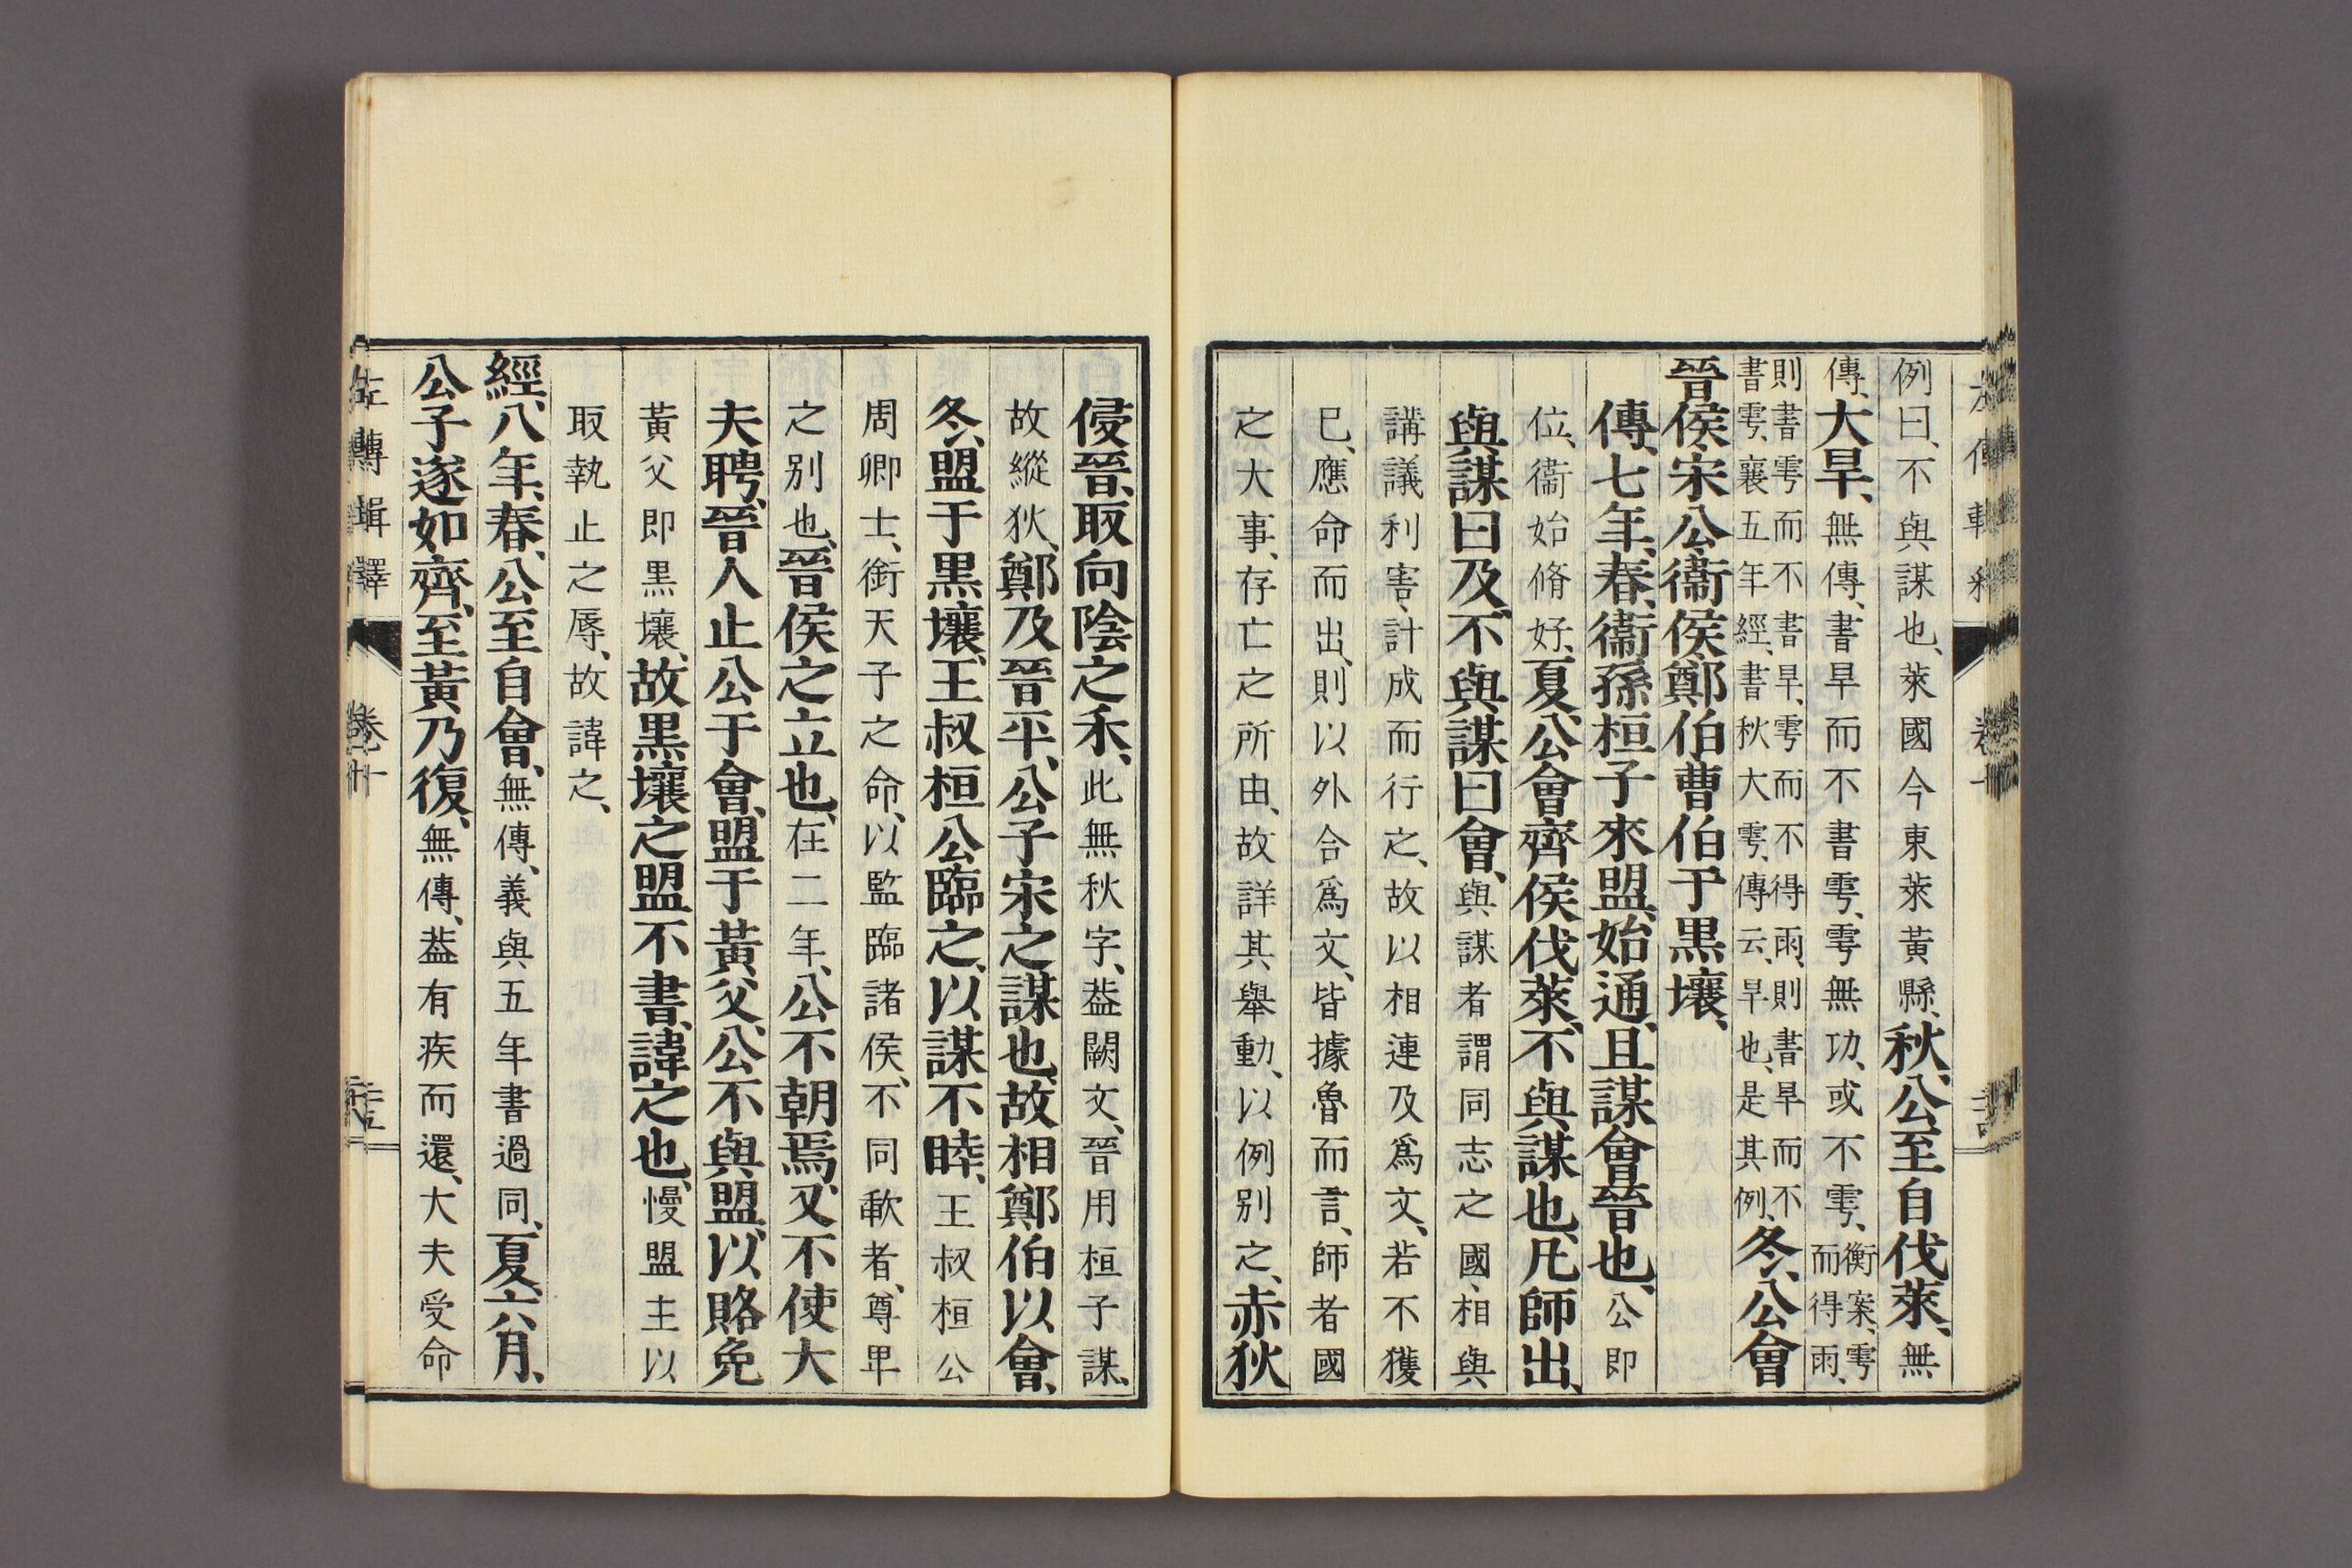 例曰、不與謀也、萊國今東萊黃縣、秋、公至自伐萊、無
傳、大旱、無傳、書旱而不書雩、雩無功、或不雩、衡案、雩
而得雨、
則書雩而不書旱、雩而不得雨、則書旱而不
書雩、襄五年經、書秋大雩、傳云、旱也、是其例、冬、公會
晉侯宋公衞侯鄭伯曹伯于黑壤、
傳、七年、春、衞孫桓子來盟、始通、且謀會晉也、公即
位、衞始脩好、夏、公會齊侯伐萊、不與謀也、凡師出、
與謀曰及、不與謀曰會、與謀者謂同志之國、相與
講議利害、計成而行之、故以相連及爲文、若不獲
已、應命而出、則以外合爲文、皆據魯而言、師者國
之大事、存亡之所由、故詳其舉動、以例別之、赤狄
侵晉、取向陰之禾、此無秋字、葢闕文、晉用桓子謀、
故縱狄、鄭及晉平、公子宋之謀也、故相鄭伯以會、
冬、盟于黑壤、王叔桓公臨之、以謀不睦、王叔桓公
周卿士、銜天子之命、以監臨諸侯、不同歃者、尊卑
之別也、晉侯之立也、在二年、公不朝焉、又不使大
夫聘、晉人止公于會、盟于黃父、公不與盟、以賂免
黃父即黑壤、故黑壤之盟不書、諱之也、慢盟主以
取執止之辱、故諱之、
經、八年、春、公至自會、無傳、義與五年書過同、夏、六月、
公子遂如齊、至黃乃復、無傳、葢有疾而還、大夫受命
左傳輯釋 卷十